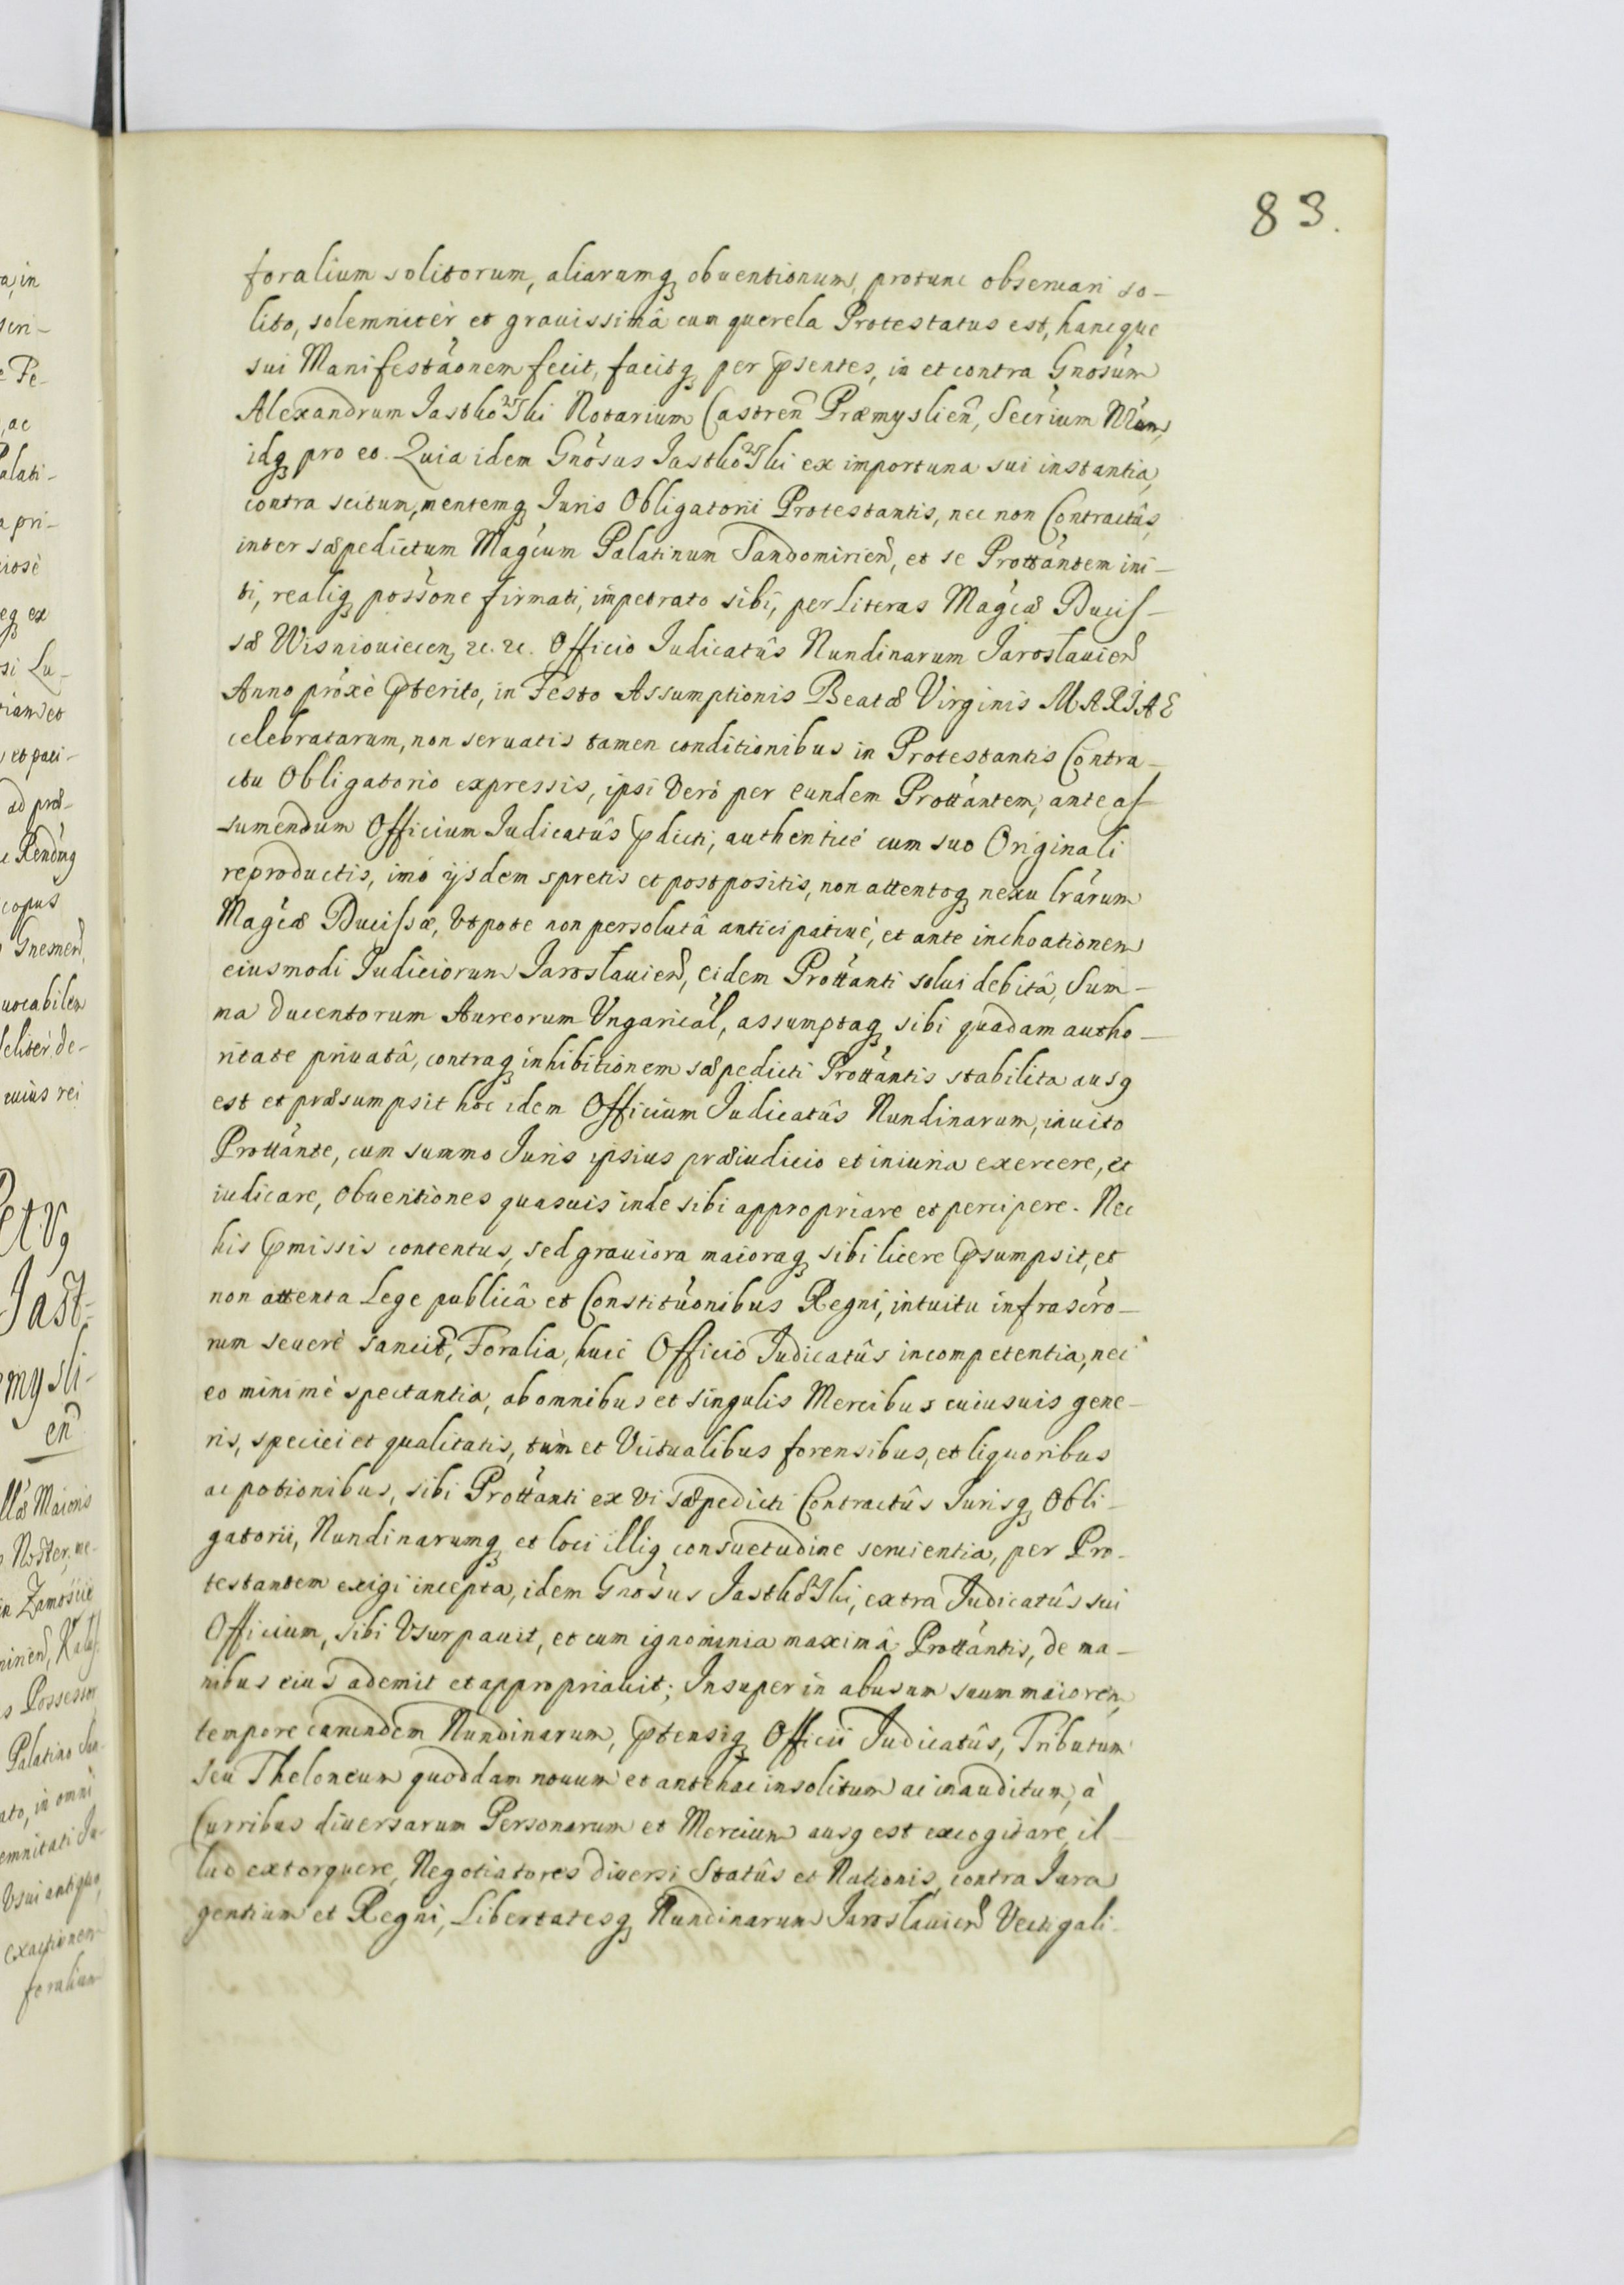 83.
foralium solitorum, aliarumq obuentionum, protunc obseruari so-
lito, solemnitèr et grauissimâ cum querela Protestatus est, hancque
sui Manifestãonem fecit, facitq per p̃sentes, in et contra Gnosum
Alexandrum Notarium Castren̄ Præmyslien̄, Secrium Nrum,
idq pro eo. Quia idem Gnosus ex importuna sui instantia,
contra scitum, mentemq Iuris Obligatorii Protestantis, nec non Contractûs,
inter sæpedictum Magcum Palatinum Sandomirien̄, et se Prottantem ini-
ti, realiq possone firmati, impetrato sibi, per Literas Magcæ Ducis-
sæ Wisniouiecen, 2c. 2c. Officio Iudicatûs Nundinarum Jaroslauien̄
Anno proxè p̃terito, in Festo Assumptionis Beatæ Virginis MARIAE
celebratarum, non seruatis tamen conditionibus in Protestantis Contra-
ctu Obligatorio expressis, ipsi Verò per eundem Prottantem, ante as-
sumendum Officium Iudicatûs p̃dicti, authenticè cum suo Originali
reproductis, imò ijsdem spretis et postpositis, non attentoq nexu lrarum
Magcæ Ducissæ, Vtpote non persolutâ anticipatiuè, et ante inchoationem
eiusmodi Iudiciorum Jaroslauien̄, eidem Prottanti solui debitâ, Sum-
ma Ducentorum Aureorum Vngarical, assumptaq sibi quadam autho-
ritate priuatâ, contraq inhibitionem sæpedicti Prottantis stabilita ausq
est et præsumpsit hoc idem Officium Iudicatûs Nundinarum, inuito
Prottante, cum summo Iuris ipsius præiudicio et iniuria exercere, et
iudicare, obuentiones quasuis inde sibi appropriare et percipere. Nec
his p̃missis contentus, sed grauiora maioraq sibi licere p̃sumpsit, et
non attenta Lege publicâ et Constituonibus Regni, intuitu infrascro-
rum seuerè sancit, Foralia, huic Officio Iudicatûs incompetentia, nec
eo minimè spectantia, ab omnibus et singulis Mercibus cuiusuis gene-
ris, speciei et qualitatis, tùm et Victualibus forensibus, et liquoribus
ac potionibus, sibi Prottanti ex vi sæpedicti Contractûs Iurisq Obli-
gatorii, Nundinarumq et loci illiq consuetudine seruientia, per Pro-
testantem exigi incepta, idem Gnosus extra Iudicatûs sui
Officium, sibi Vsurpauit, et cum ignominia maximâ Prottantis, de ma-
nibus eius ademit et appropriauit; Insuper in abusum suum maiorem,
tempore earundem Nundinarum, p̃tensiq Officii Iudicatûs, Tributum
seu Theloneum quoddam nouum et antehac insolitum ac inauditum, à
Curribus diuersarum Personarum et Mercium ausq est excogitare, il-
lud extorquere, Negotiatores diuersi Statûs et Nationis, contra Iura
gentium et Regni, Libertatesq Nundinarum Jaroslauien̄ Vectigali-